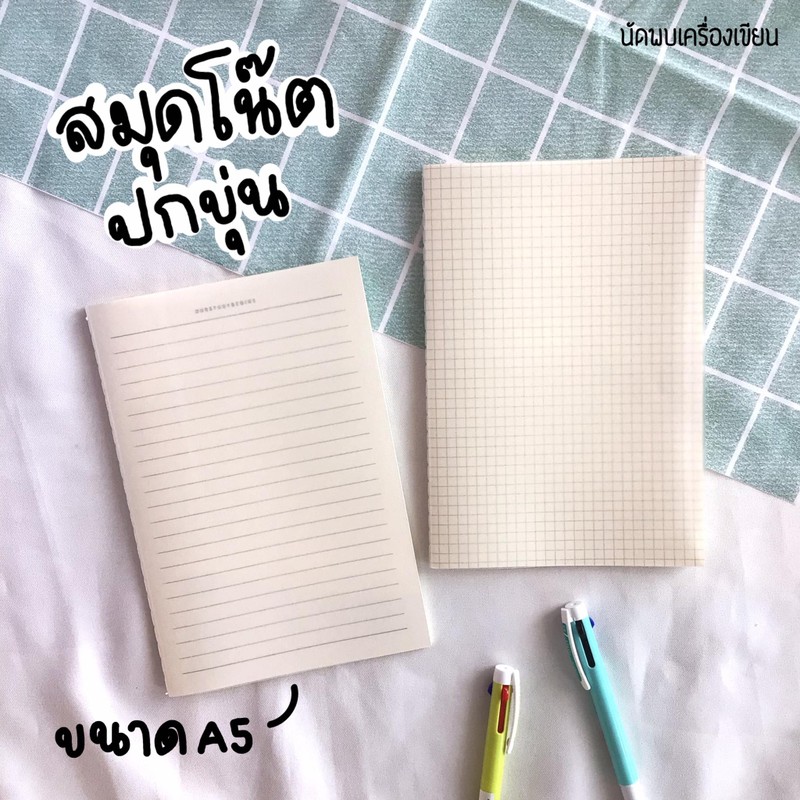 นัดพบเครื่องเขียน
สมุดโน๊ต
ปกขุ่น
ขนาด A5